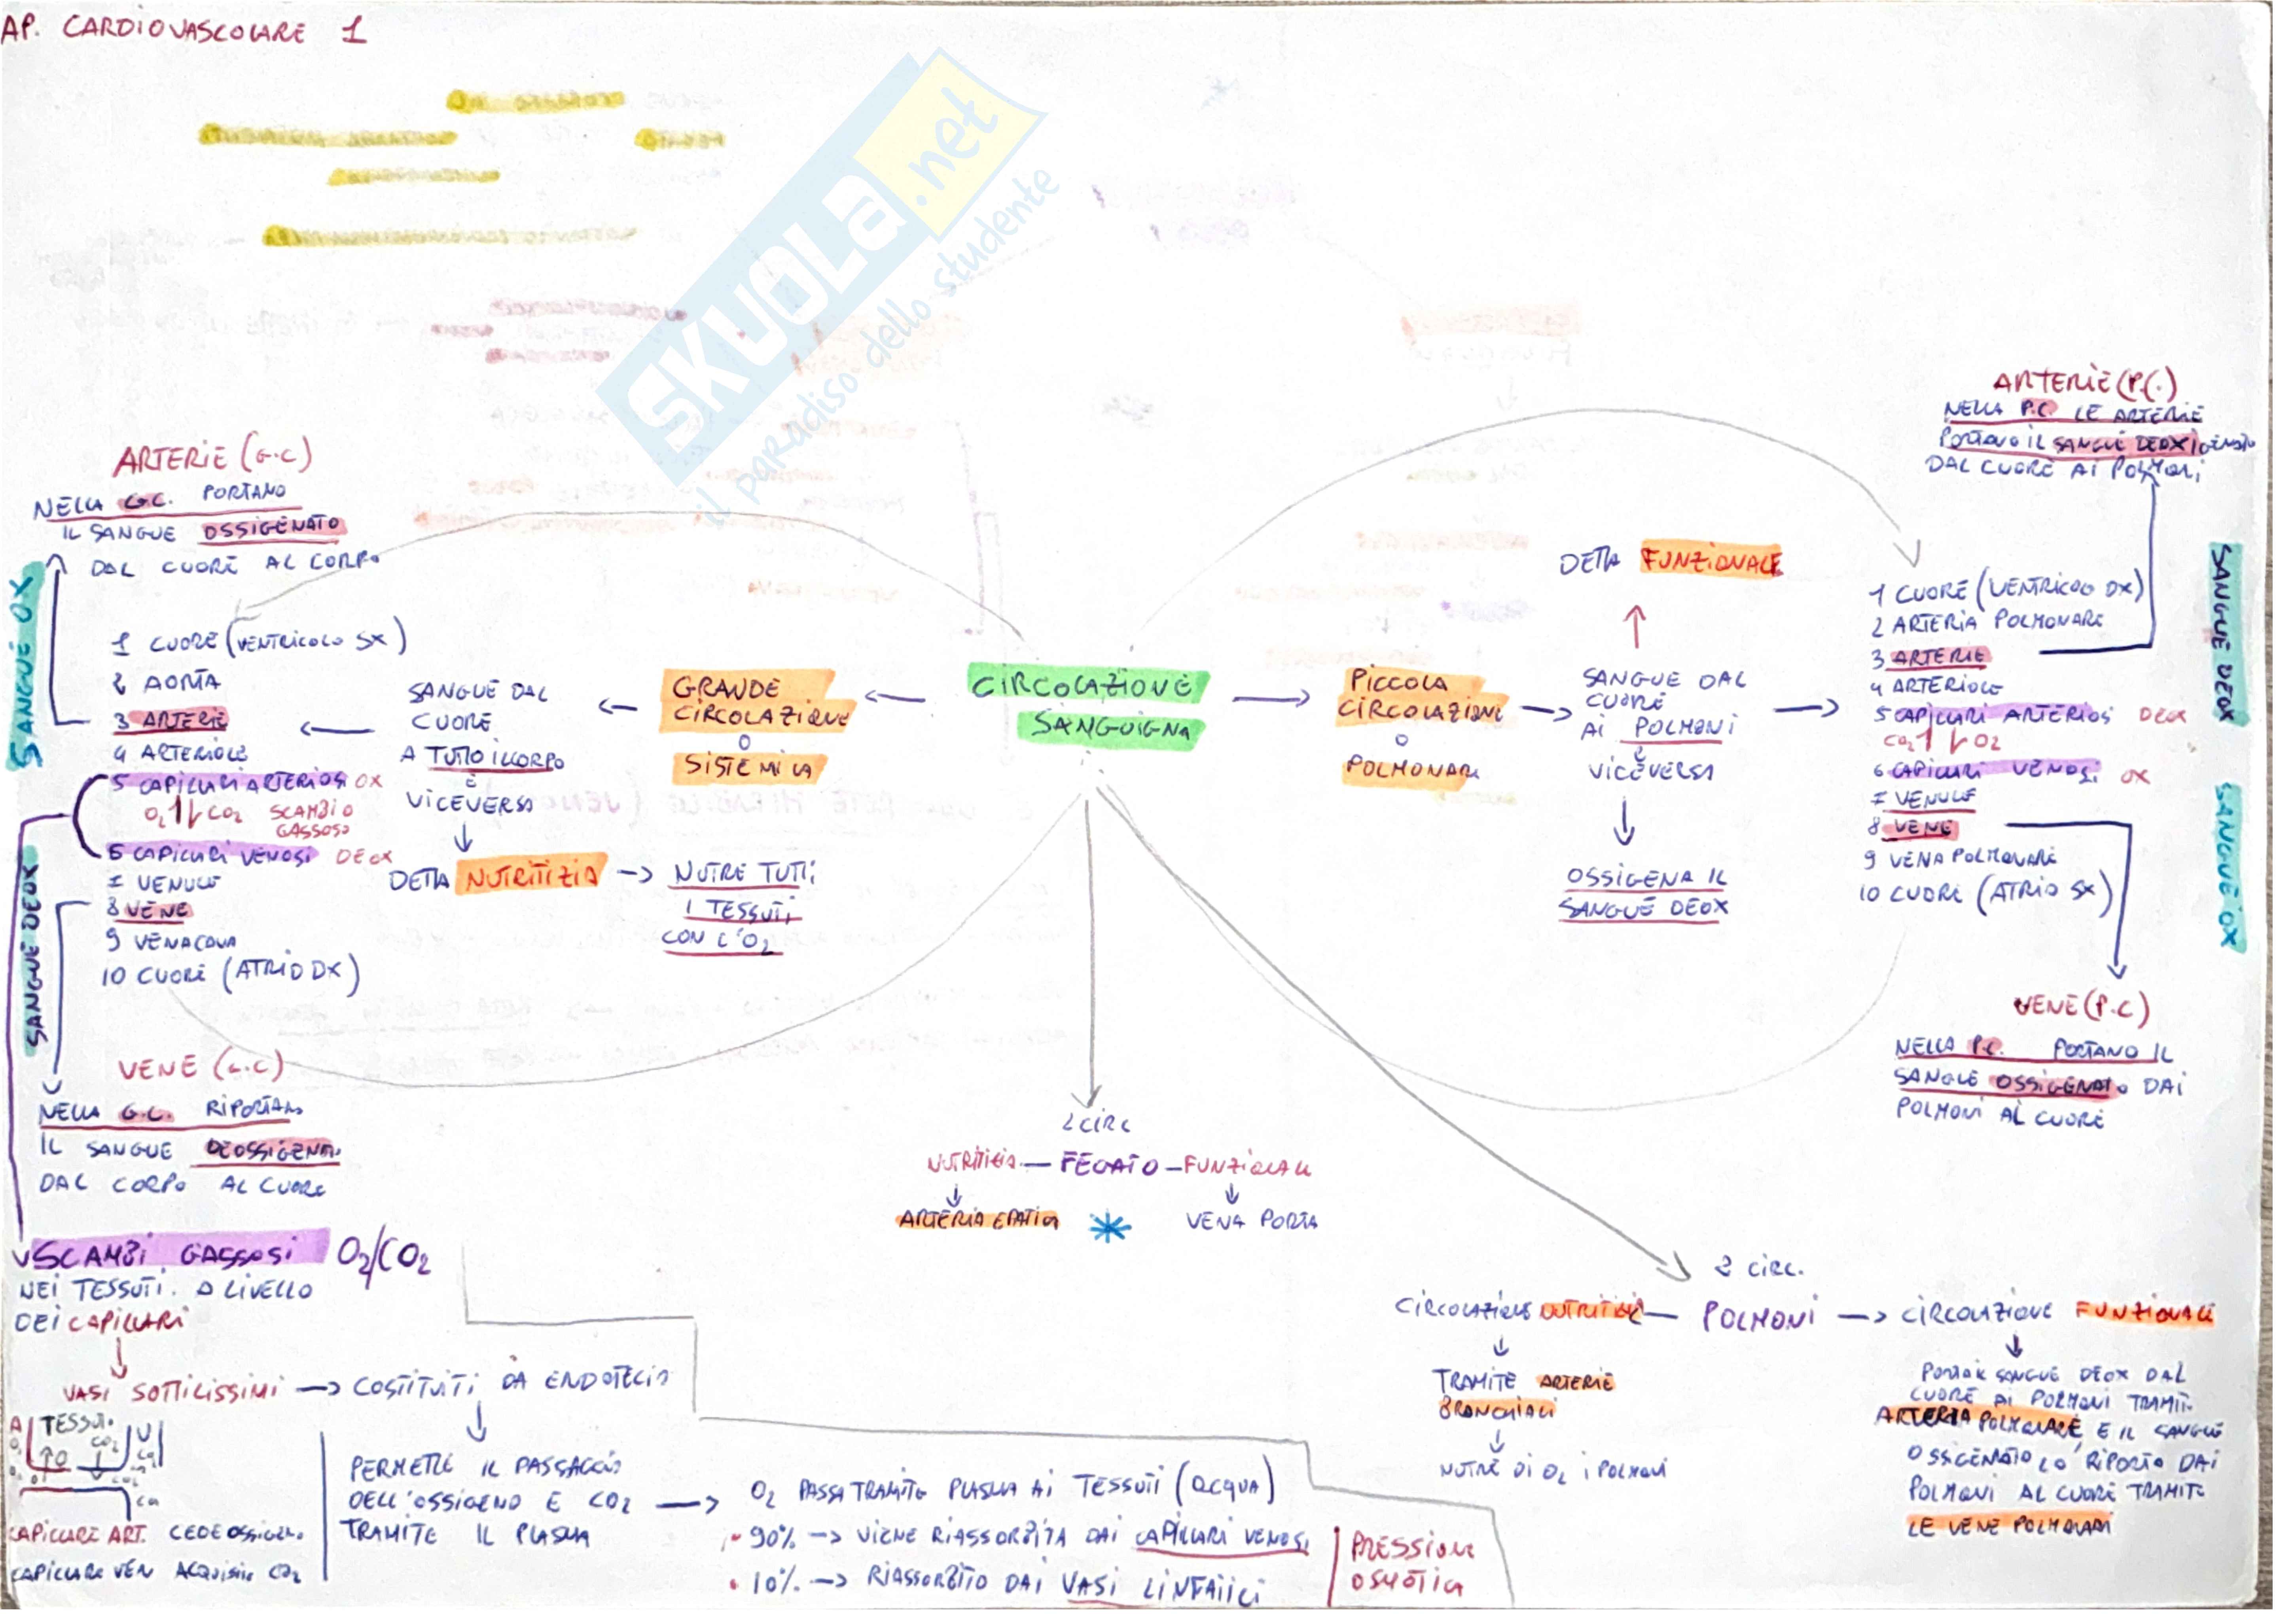 AP. CARDIOVASCOLARE 1
SKUOLA.net
il paradiso dello studente
ARTERIE (G.C)
NELLA G.C. PORTANO
IL SANGUE OSSIGENATO
DAL CUORE AL CORPO
SANGUE OX
1 CUORE (VENTRICOLO SX)
2 AORTA
3 ARTERIE
4 ARTERIOLE
5 CAPILLARI ARTERIOSI OX
O2 CO2 SCAMBIO
GASSOSO
6 CAPILLARI VENOSI DEOX
7 VENULE
8 VENE
9 VENA CAVA
10 CUORE (ATRIO DX)
SANGUE DEOX
VENE (G.C)
NELLA G.C. RIPORTANO
IL SANGUE DEOSSIGENATO
DAL CORPO AL CUORE
SANGUE DAL
CUORE
A TUTTO IL CORPO
E
VICEVERSA
DETTA NUTRITIZIA
NUTRE TUTTI
I TESSUTI
CON L'O2
GRANDE
CIRCOLAZIONE
O
SISTEMICA
CIRCOLAZIONE
SANGUIGNA
PICCOLA
CIRCOLAZIONE
O
POLMONARE
DETTA FUNZIONALE
SANGUE DAL
CUORE
AI POLMONI
E
VICEVERSA
OSSIGENA IL
SANGUE DEOX
ARTERIE (P.C.)
NELLA P.C. LE ARTERIE
PORTANO IL SANGUE DEOXIGENATO
DAL CUORE AI POLMONI
1 CUORE (VENTRICOLO DX)
2 ARTERIA POLMONARE
3 ARTERIE
4 ARTERIOLE
5 CAPILLARI ARTERIOSI DEOX
CO2 O2
6 CAPILLARI VENOSI OX
7 VENULE
8 VENE
9 VENA POLMONARE
10 CUORE (ATRIO SX)
SANGUE DEOX
SANGUE OX
VENE (P.C)
NELLA P.C. PORTANO IL
SANGUE OSSIGENATO DAI
POLMONI AL CUORE
2 CIRC
NUTRITIZIA - FEGATO - FUNZIONALE
ARTERIA EPATICA
VENA PORTA
2 CIRC.
CIRCOLAZIONE NUTRITIZIA - POLMONI -> CIRCOLAZIONE FUNZIONALE
TRAMITE ARTERIE
BRONCHIALI
NUTRE DI O2 I POLMONI
PORTA IL SANGUE DEOX DAL
CUORE AI POLMONI TRAMITE
ARTERIA POLMONARE E IL SANGUE
OSSIGENATO LO RIPORTA DAI
POLMONI AL CUORE TRAMITE
LE VENE POLMONARI
SCAMBI GASSOSI O2/CO2
NEI TESSUTI. A LIVELLO
DEI CAPILLARI
VASI SOTTILISSIMI -> COSTITUITI DA ENDOTELIO
A TESSUTI V
O2 CO2
CAPILLARE ART. CEDE OSSIGENO
CAPILLARE VEN ACQUISISCE CO2
PERMETTE IL PASSAGGIO
DELL'OSSIGENO E CO2
TRAMITE IL PLASMA
O2 PASSA TRAMITE PLASMA AI TESSUTI (ACQUA)
90% -> VIENE RIASSORBITA DAI CAPILLARI VENOSI
10% -> RIASSORBITO DAI VASI LINFATICI
PRESSIONE
OSMOTICA